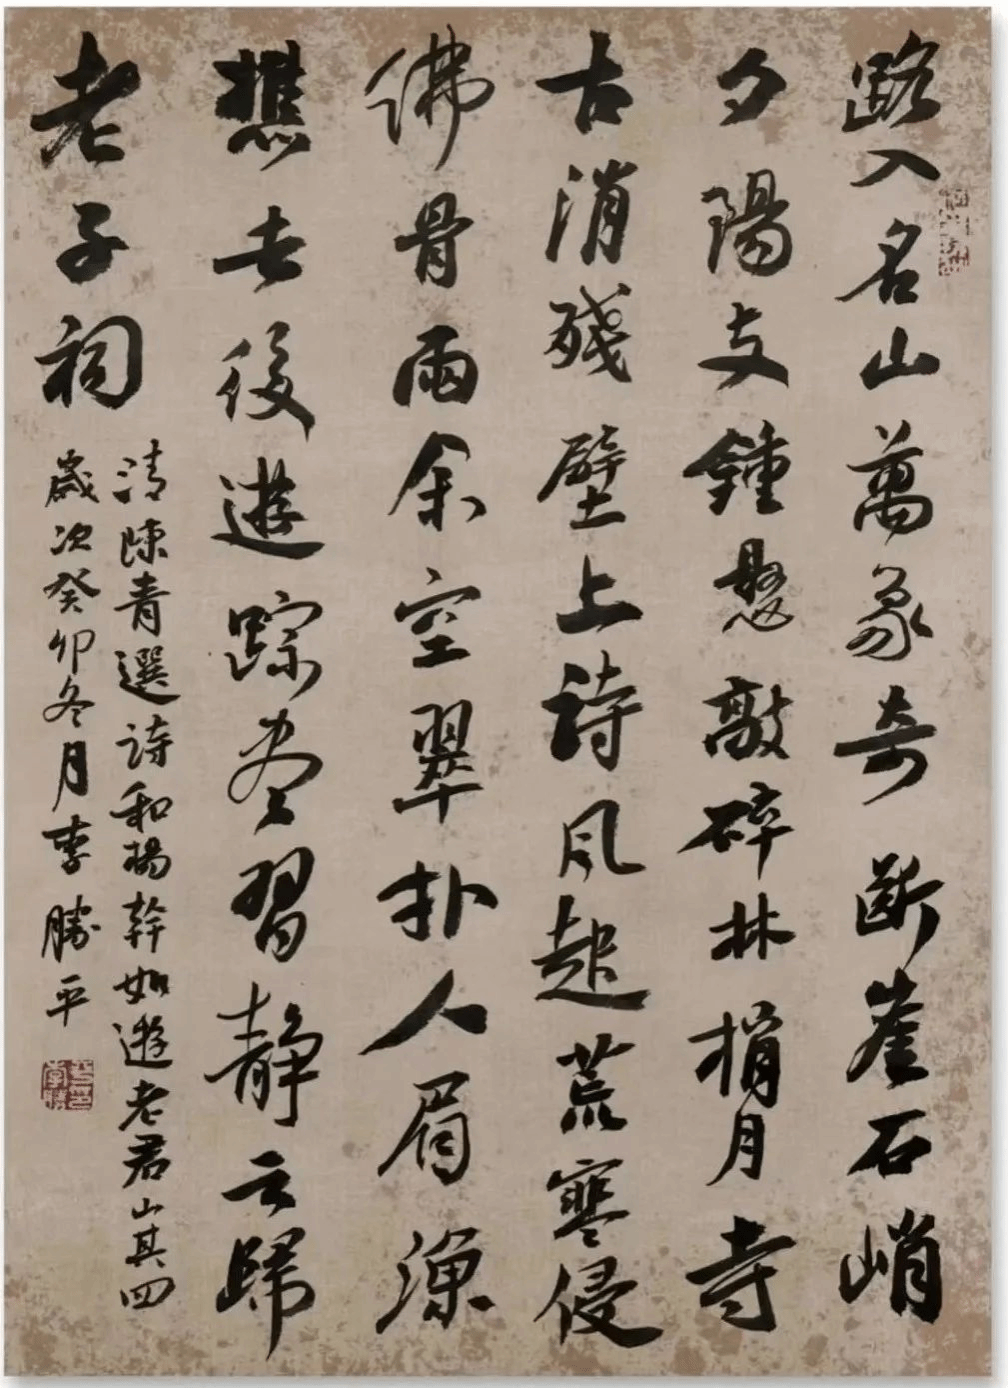 路入名山萬象奇斷崖石峭
夕陽支鍾聲敲碎林捎月寺
古消殘壁上詩風起荒寒侵
佛骨雨余空翠扑人眉漁
樵去後遊踪尽習静云歸
老子祠
清陳青選詩和楊幹如遊老君山其四
歲次癸卯冬月李勝平